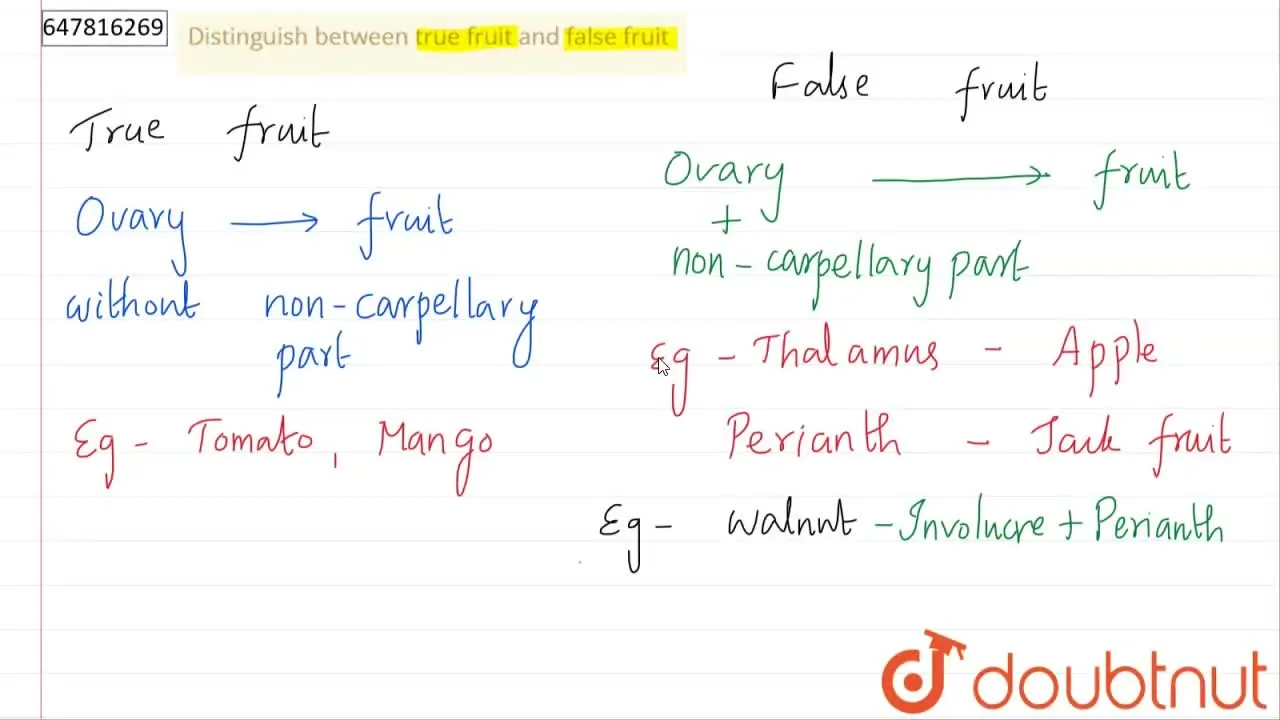 647816269
Distinguish between true fruit and false fruit
True fruit
Ovary → fruit
without non-carpellary
part
Eg - Tomato, Mango
False fruit
Ovary → fruit
+
non-carpellary part
Eg - Thalamus - Apple
Perianth - Jack fruit
Eg - walnut - Involucre + Perianth
doubtnut